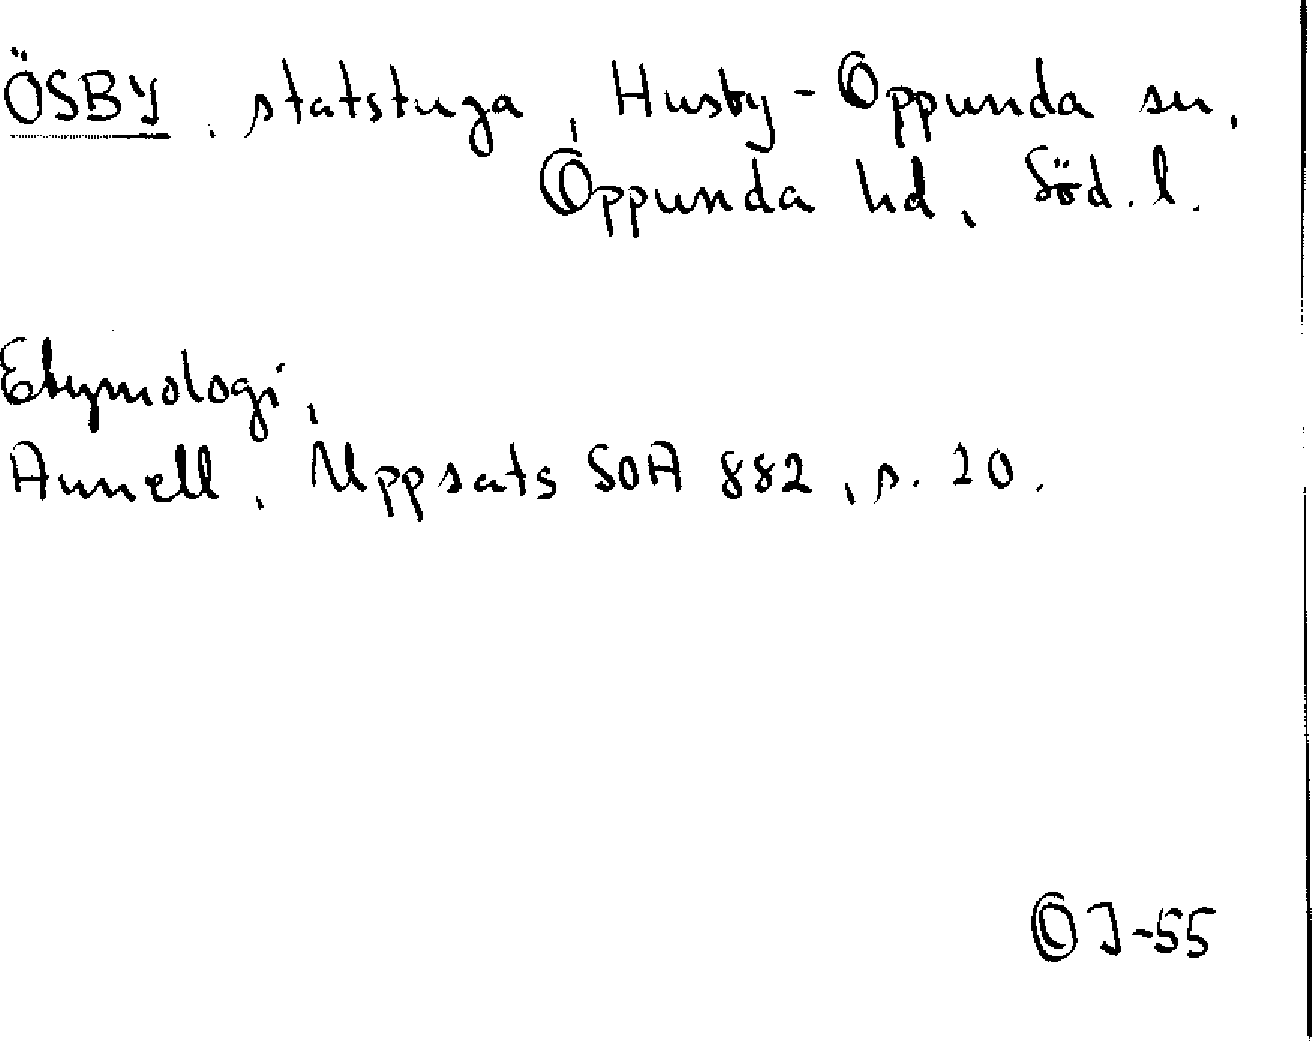 ÖSBY, statstuga, Husby-Oppunda sn,
Oppunda hd, Söd. l.
Etymologi,
Annell, Uppsats SOA 882, s. 20.
OJ-55